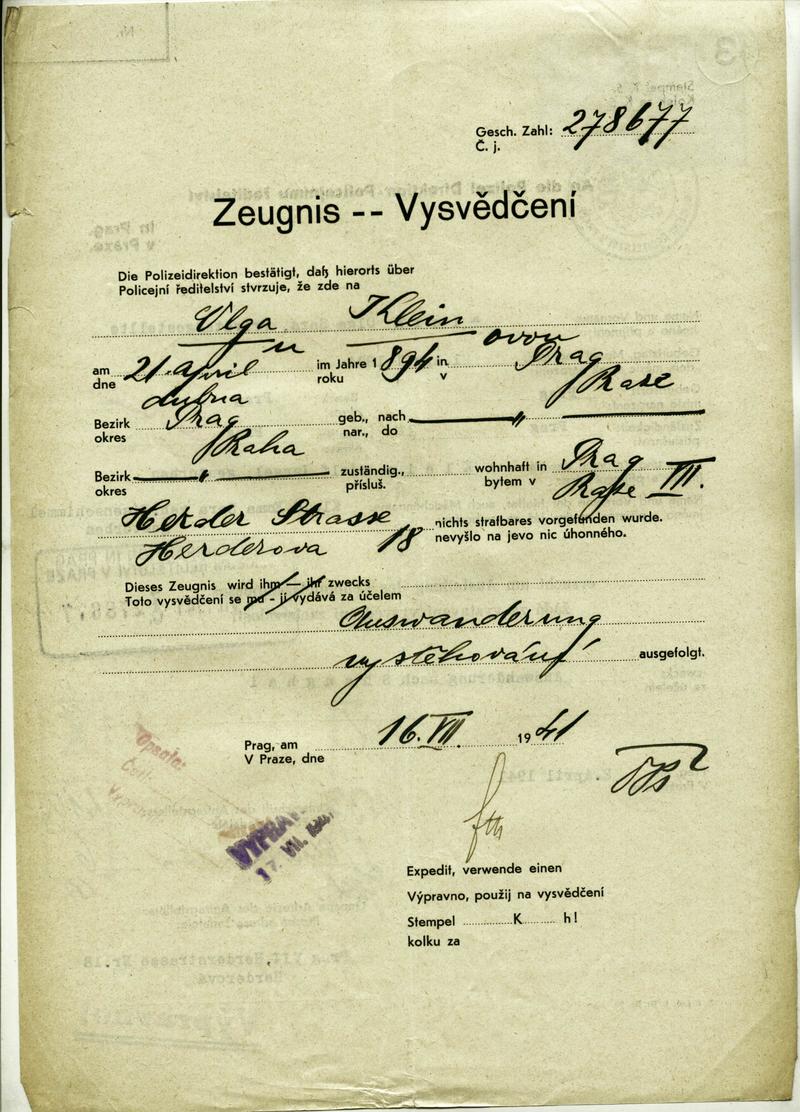 Gesch. Zahl: 278677
Č. j.
Zeugnis -- Vysvědčení
Die Polizeidirektion bestätigt, daß hierorts über
Policejní ředitelství stvrzuje, že zde na
Olga Klein
u ovou
am 21. April im Jahre 1894 in Prag
dne dubna roku v Praze
Bezirk Prag geb., nach "
okres Praha nar., do
Bezirk " zuständig., wohnhaft in Prag
okres přísluš. bytem v Praze VII.
Herder Strasse nichts strafbares vorgefunden wurde.
Herderova 18 nevyšlo na jevo nic úhonného.
Dieses Zeugnis wird ihm — ihr zwecks
Toto vysvědčení se mu - jí vydává za účelem
Auswanderung
vystěhování ausgefolgt.
Prag, am 16. VII. 1941
V Praze, dne
VYPRA
17. VII.
Expedit, verwende einen
Výpravno, použij na vysvědčení
Stempel K h!
kolku za